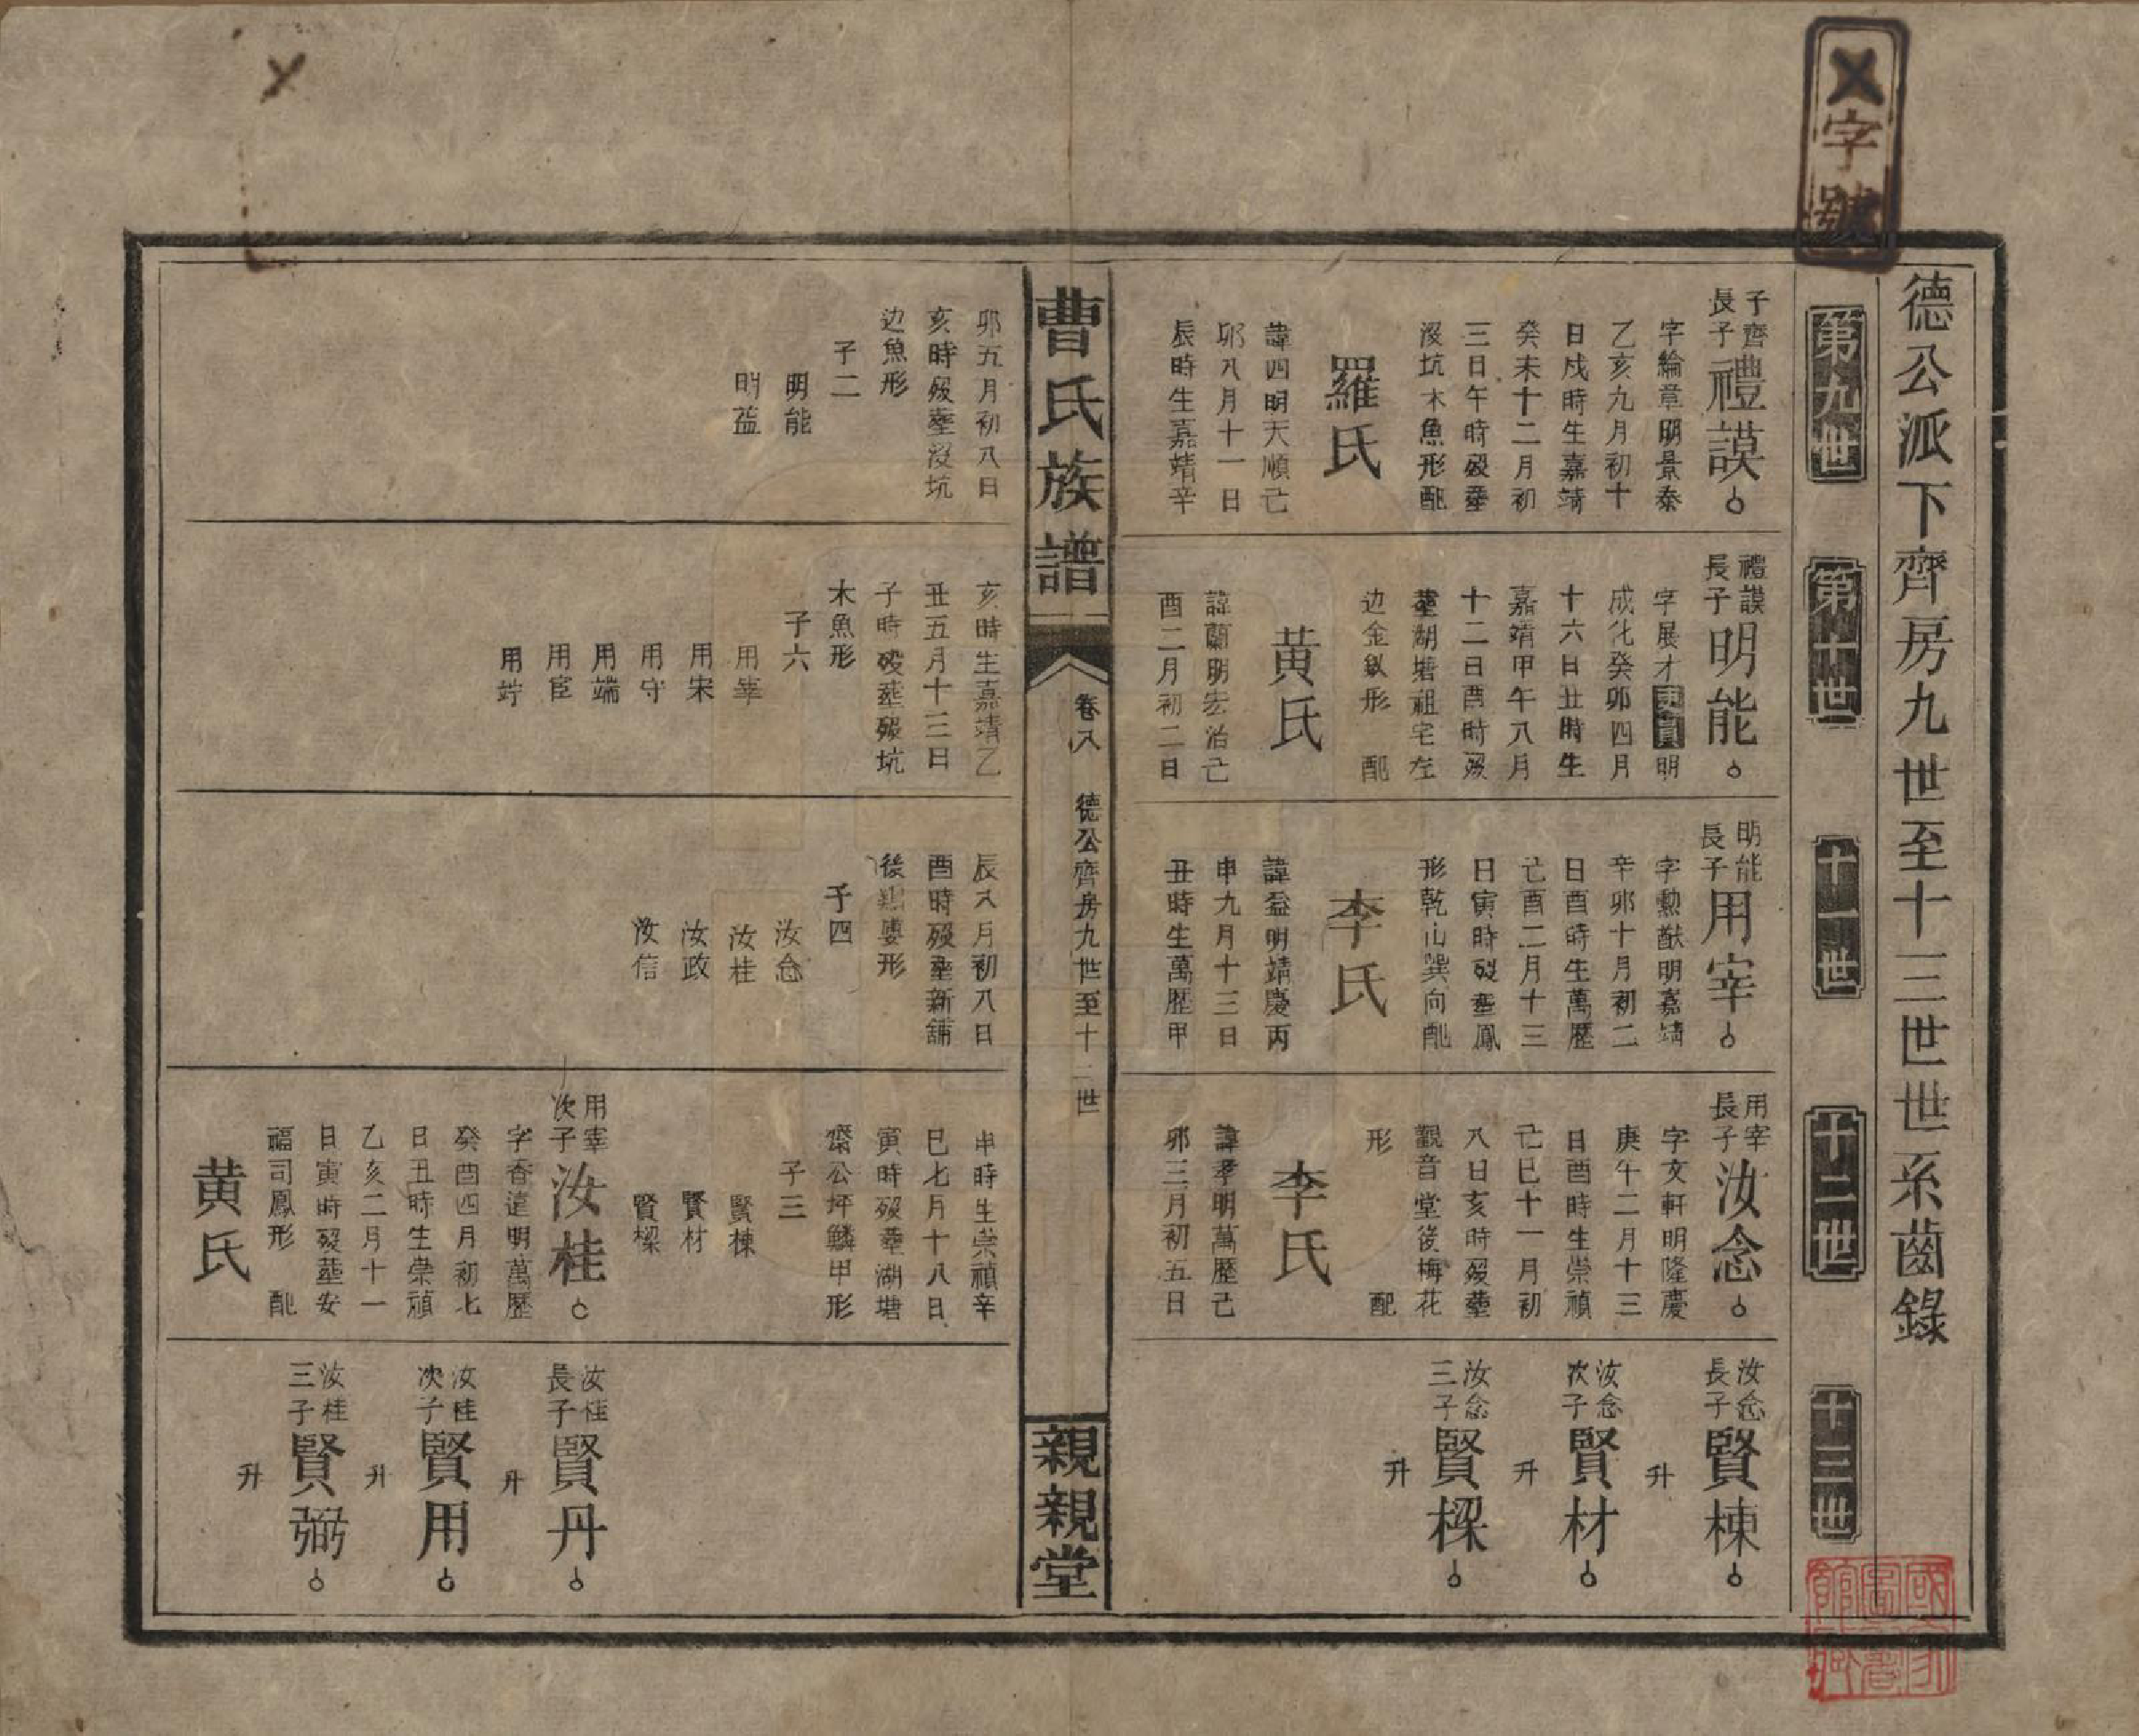 字號
德公派下齊房九世至十三世世系齒錄
第九世
第十世
十一世
十二世
十三世
子齊
長子
禮謨
字綸章明景泰
乙亥九月初十
日戌時生嘉靖
癸未十二月初
三日午時歿塟
沒坑木魚形配
羅氏
諱四明天順己
卯八月十一日
辰時生嘉靖辛
禮謨
長子
明能
字展才東賓明
成化癸卯四月
十六日丑時生
嘉靖甲午八月
十二日酉時歿
塟湖塘祖宅左
边金釵形 配
黄氏
諱蘭明宏治己
酉二月初二日
明能
長子
用宰
字勲猷明嘉靖
辛卯十月初二
日酉時生萬歷
己酉二月十三
日寅時歿塟鳳
形乾山巽向配
李氏
諱益明靖慶丙
申九月十三日
丑時生萬歷甲
用宰
長子
汝念
字文軒明隆慶
庚午二月十三
日酉時生崇禎
己巳十一月初
八日亥時歿塟
觀音堂後梅花
形 配
李氏
諱孝明萬歷己
卯三月初五日
汝念
長子
賢棟
升
汝念
次子
賢材
升
汝念
三子
賢樑
升
曹氏族譜
卷八
德公齊房九世至十三世
親親堂
卯五月初八日
亥時歿塟沒坑
边魚形
子二
明能
明益
亥時生嘉靖乙
丑五月十三日
子時歿塟歿坑
木魚形
子六
用宰
用宋
用守
用端
用宦
用竚
辰八月初八日
酉時歿塟新舖
後形
子四
汝念
汝桂
汝政
汝信
申時生崇禎辛
巳七月十八日
寅時歿塟湖塘
齋公坪鱗甲形
子三
賢棟
賢材
賢樑
用宰
次子
汝桂
字香遠明萬歷
癸酉四月初七
日丑時生崇禎
乙亥二月十一
日寅時歿塟安
福司鳳形 配
黄氏
汝桂
長子
賢丹
升
汝桂
次子
賢用
升
汝桂
三子
賢弼
升
國家圖書館藏